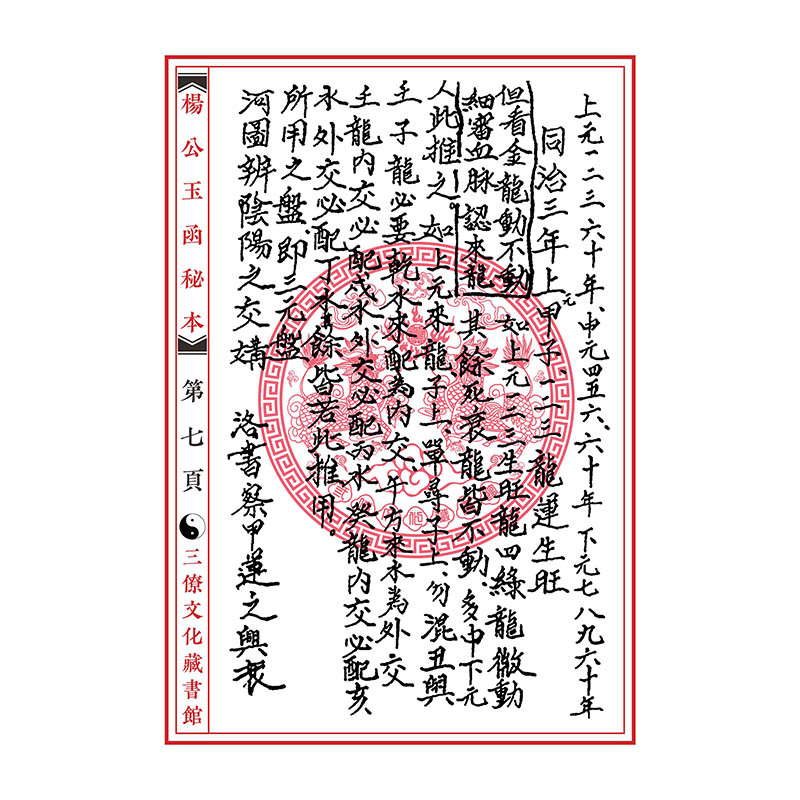 上元一二三六十年、中元四五六、六十年下元七八九六十年
同治三年上元甲子、一二三龍運生旺
但看金龍動不動 如上元一二三生旺龍四綠龍微動
細審血脉認來龍 其餘死衰龍皆不動、多中下元
人此推之。如上元來龍子上、單尋子上、勿混丑與
壬子龍必要乾水來配為內交、午方來水為外交
壬龍內交必配戌水外交必配丙水 癸龍內交必配亥
水外交必配丁水其餘皆若此推用。
所用之盤、即三元盤
河圖辨陰陽之交媾 洛書察甲運之興衰
楊公玉函秘本
第七頁
三僚文化藏書館